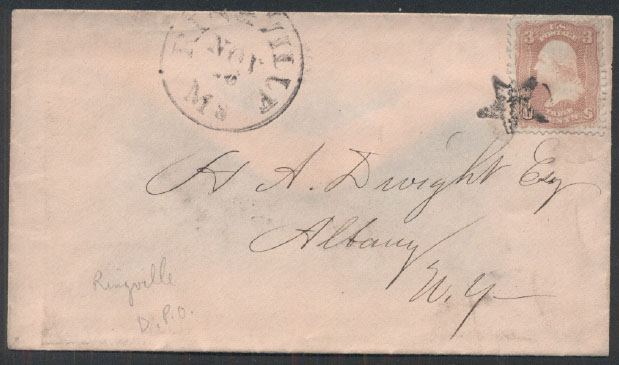 RINGVILLE
NOV
MS
3 U.S. POSTAGE 3
H A. Dwight Esq
Albany
N.Y.
Ringville
D.P.O.